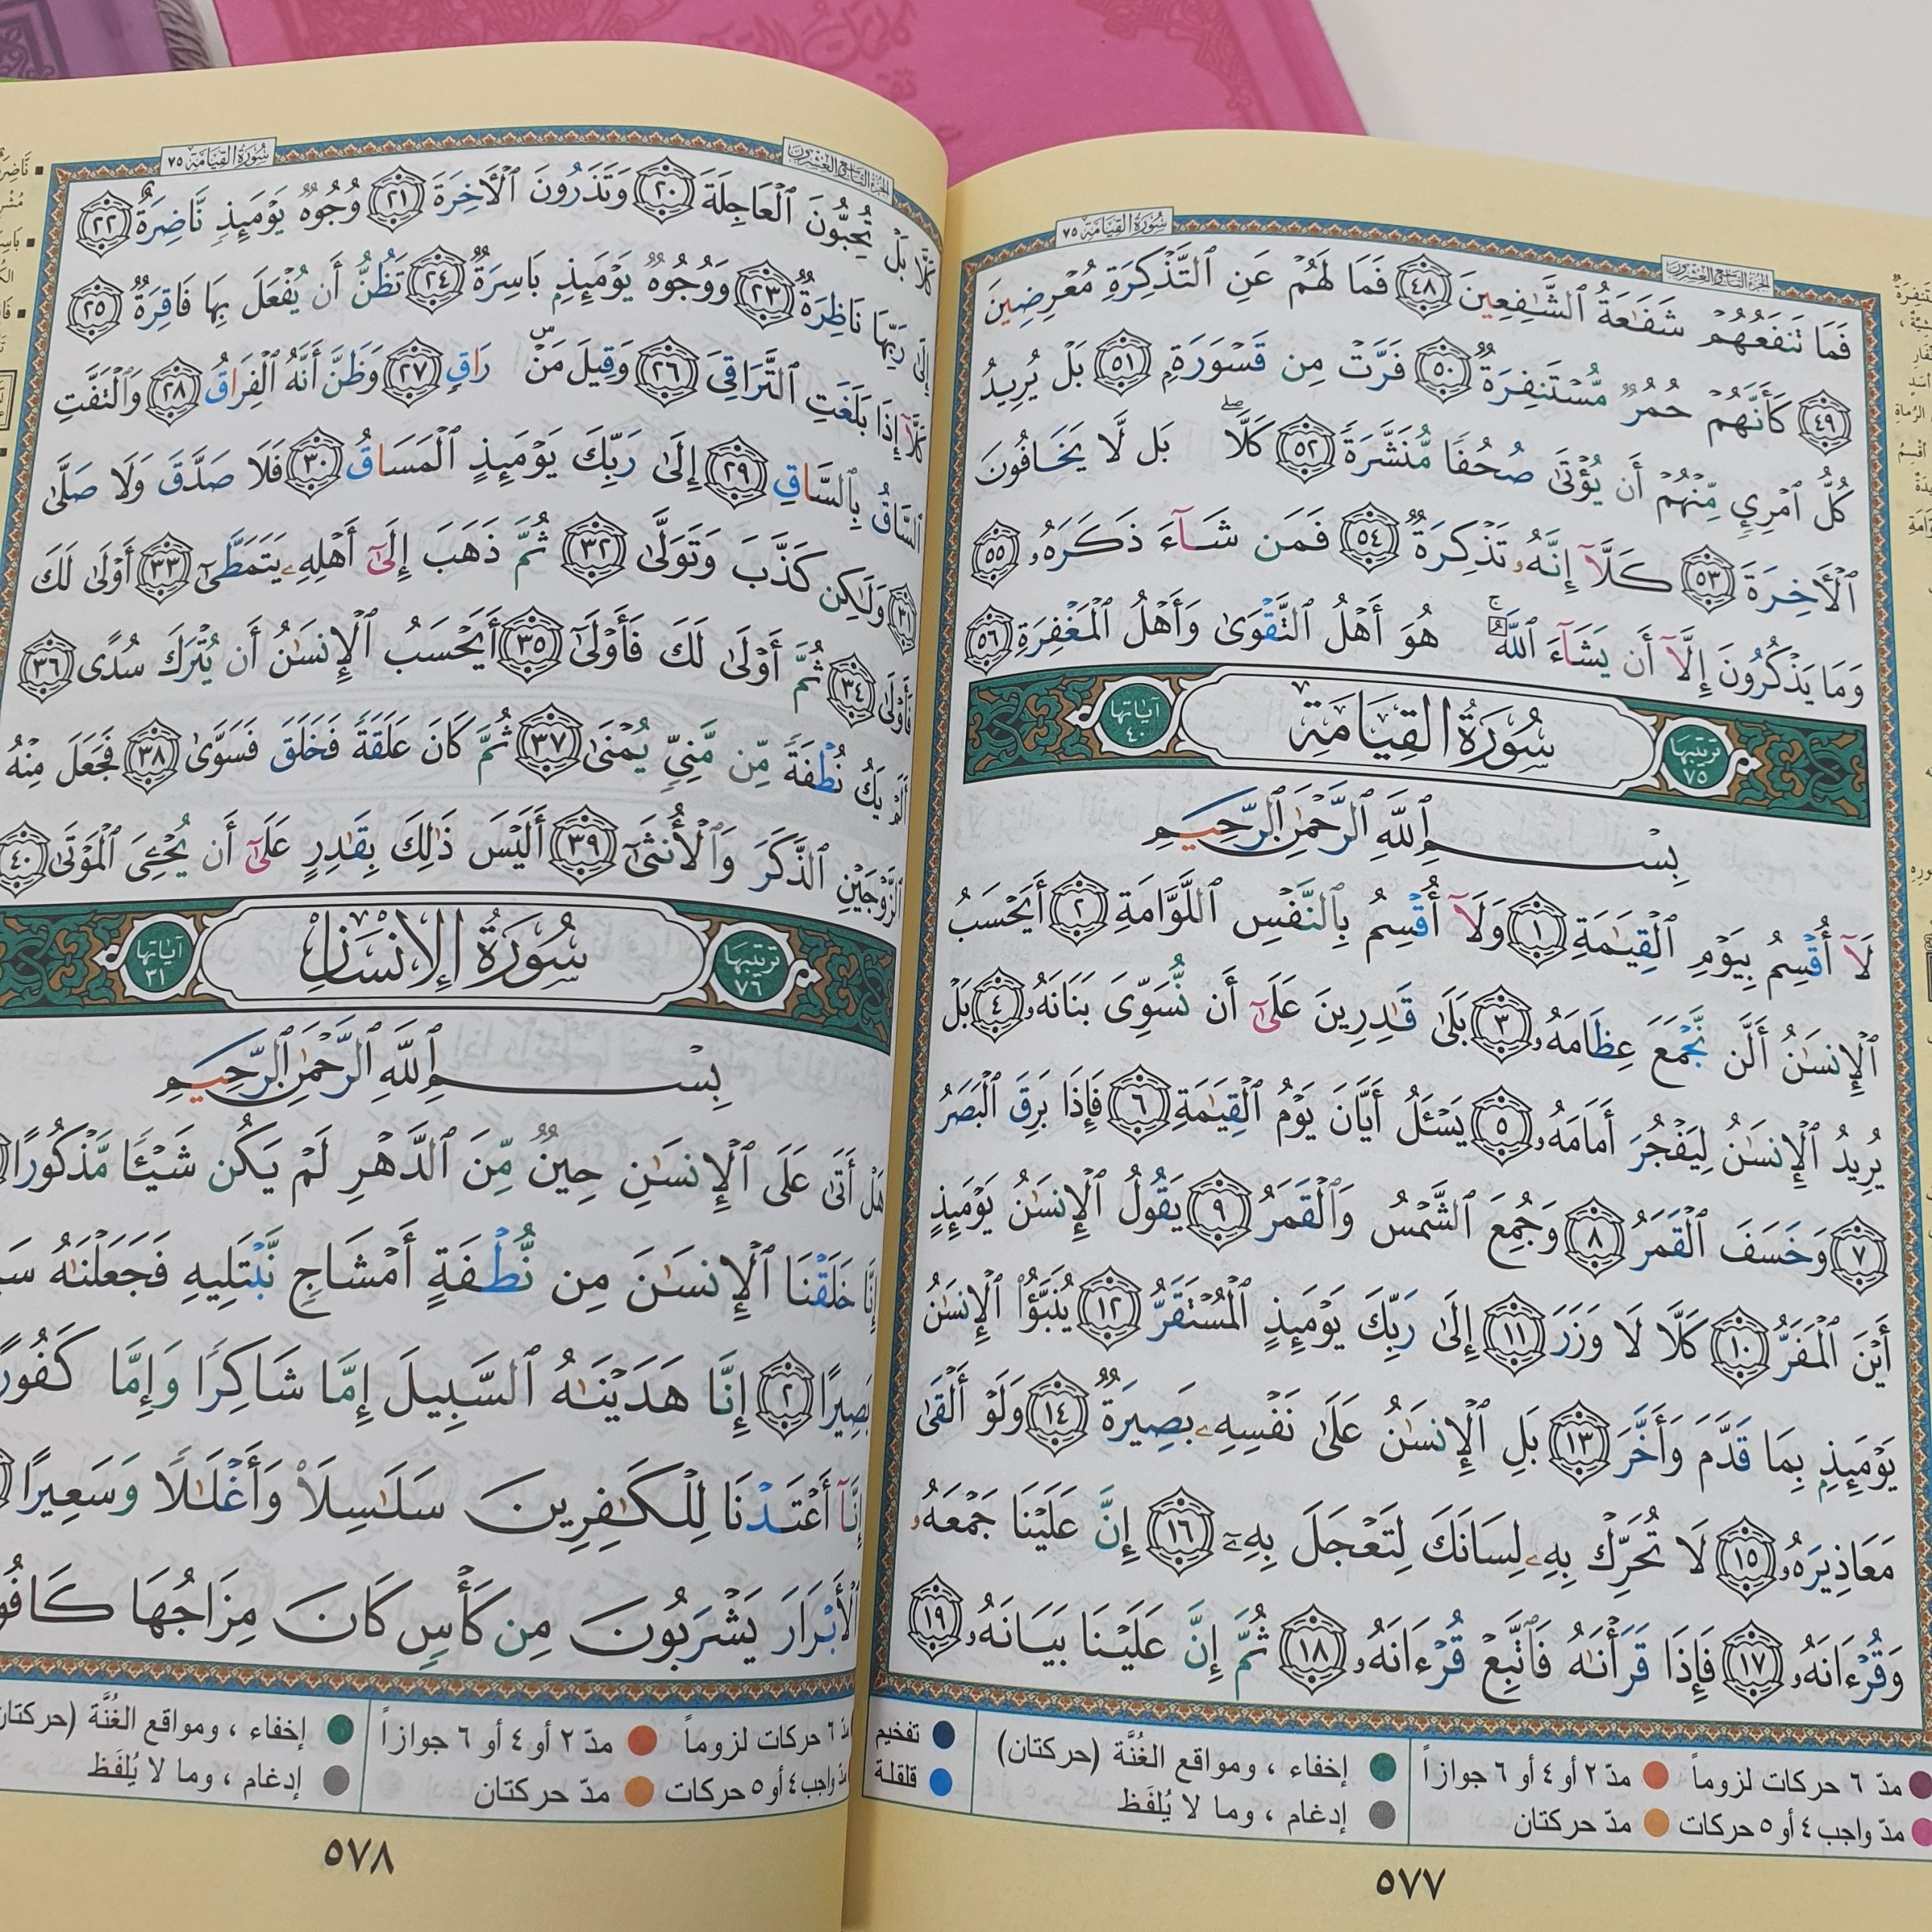 سُورَةُ القِيَامَة ٧٥
الجزء التاسع والعشرون
فَمَا تَنفَعُهُمۡ شَفَٰعَةُ ٱلشَّٰفِعِينَ ٤٨ فَمَا لَهُمۡ عَنِ ٱلتَّذۡكِرَةِ مُعۡرِضِينَ
٤٩ كَأَنَّهُمۡ حُمُرٞ مُّسۡتَنفِرَةٞ ٥٠ فَرَّتۡ مِن قَسۡوَرَةِۭ ٥١ بَلۡ يُرِيدُ
كُلُّ ٱمۡرِيٕٖ مِّنۡهُمۡ أَن يُؤۡتَىٰ صُحُفٗا مُّنَشَّرَةٗ ٥٢ كَلَّاۖ بَل لَّا يَخَافُونَ
ٱلۡأٓخِرَةَ ٥٣ كَلَّآ إِنَّهُۥ تَذۡكِرَةٞ ٥٤ فَمَن شَآءَ ذَكَرَهُۥ ٥٥
وَمَا يَذۡكُرُونَ إِلَّآ أَن يَشَآءَ ٱللَّهُۚ هُوَ أَهۡلُ ٱلتَّقۡوَىٰ وَأَهۡلُ ٱلۡمَغۡفِرَةِ ٥٦
ترتيبها ٧٥ سُورَةُ القِيَامَة آياتها ٤٠
بِسۡمِ ٱللَّهِ ٱلرَّحۡمَٰنِ ٱلرَّحِيمِ
لَآ أُقۡسِمُ بِيَوۡمِ ٱلۡقِيَٰمَةِ ١ وَلَآ أُقۡسِمُ بِٱلنَّفۡسِ ٱللَّوَّامَةِ ٢ أَيَحۡسَبُ
ٱلۡإِنسَٰنُ أَلَّن نَّجۡمَعَ عِظَامَهُۥ ٣ بَلَىٰ قَٰدِرِينَ عَلَىٰٓ أَن نُّسَوِّيَ بَنَانَهُۥ ٤ بَلۡ
يُرِيدُ ٱلۡإِنسَٰنُ لِيَفۡجُرَ أَمَامَهُۥ ٥ يَسۡـَٔلُ أَيَّانَ يَوۡمُ ٱلۡقِيَٰمَةِ ٦ فَإِذَا بَرِقَ ٱلۡبَصَرُ
٧ وَخَسَفَ ٱلۡقَمَرُ ٨ وَجُمِعَ ٱلشَّمۡسُ وَٱلۡقَمَرُ ٩ يَقُولُ ٱلۡإِنسَٰنُ يَوۡمَئِذٍ
أَيۡنَ ٱلۡمَفَرُّ ١٠ كَلَّا لَا وَزَرَ ١١ إِلَىٰ رَبِّكَ يَوۡمَئِذٍ ٱلۡمُسۡتَقَرُّ ١٢ يُنَبَّؤُاْ ٱلۡإِنسَٰنُ
يَوۡمَئِذِۭ بِمَا قَدَّمَ وَأَخَّرَ ١٣ بَلِ ٱلۡإِنسَٰنُ عَلَىٰ نَفۡسِهِۦ بَصِيرَةٞ ١٤ وَلَوۡ أَلۡقَىٰ
مَعَاذِيرَهُۥ ١٥ لَا تُحَرِّكۡ بِهِۦ لِسَانَكَ لِتَعۡجَلَ بِهِۦٓ ١٦ إِنَّ عَلَيۡنَا جَمۡعَهُۥ
وَقُرۡءَانَهُۥ ١٧ فَإِذَا قَرَأۡنَٰهُ فَٱتَّبِعۡ قُرۡءَانَهُۥ ١٨ ثُمَّ إِنَّ عَلَيۡنَا بَيَانَهُۥ ١٩
مدّ ٦ حركات لزوماً مدّ ٢ أو ٤ أو ٦ جوازاً إخفاء ، ومواقع الغُنَّة (حركتان) تفخيم
مدّ واجب ٤ أو ٥ حركات مدّ حركتان إدغام ، وما لا يُلفَظ قلقلة
٥٧٧
سُورَةُ القِيَامَة ٧٥
الجزء التاسع والعشرون
كَلَّا بَلۡ تُحِبُّونَ ٱلۡعَاجِلَةَ ٢٠ وَتَذَرُونَ ٱلۡأٓخِرَةَ ٢١ وُجُوهٞ يَوۡمَئِذٖ نَّاضِرَةٌ ٢٢
إِلَىٰ رَبِّهَا نَاظِرَةٞ ٢٣ وَوُجُوهٞ يَوۡمَئِذِۭ بَاسِرَةٞ ٢٤ تَظُنُّ أَن يُفۡعَلَ بِهَا فَاقِرَةٞ ٢٥
كَلَّآ إِذَا بَلَغَتِ ٱلتَّرَاقِيَ ٢٦ وَقِيلَ مَنۡۜ رَاقٖ ٢٧ وَظَنَّ أَنَّهُ ٱلۡفِرَاقُ ٢٨ وَٱلۡتَفَّتِ
ٱلسَّاقُ بِٱلسَّاقِ ٢٩ إِلَىٰ رَبِّكَ يَوۡمَئِذٍ ٱلۡمَسَاقُ ٣٠ فَلَا صَدَّقَ وَلَا صَلَّىٰ
٣١ وَلَٰكِن كَذَّبَ وَتَوَلَّىٰ ٣٢ ثُمَّ ذَهَبَ إِلَىٰٓ أَهۡلِهِۦ يَتَمَطَّىٰٓ ٣٣ أَوۡلَىٰ لَكَ
فَأَوۡلَىٰ ٣٤ ثُمَّ أَوۡلَىٰ لَكَ فَأَوۡلَىٰٓ ٣٥ أَيَحۡسَبُ ٱلۡإِنسَٰنُ أَن يُتۡرَكَ سُدًى ٣٦
أَلَمۡ يَكُ نُطۡفَةٗ مِّن مَّنِيّٖ يُمۡنَىٰ ٣٧ ثُمَّ كَانَ عَلَقَةٗ فَخَلَقَ فَسَوَّىٰ ٣٨ فَجَعَلَ مِنۡهُ
ٱلزَّوۡجَيۡنِ ٱلذَّكَرَ وَٱلۡأُنثَىٰٓ ٣٩ أَلَيۡسَ ذَٰلِكَ بِقَٰدِرٍ عَلَىٰٓ أَن يُحۡـِۧيَ ٱلۡمَوۡتَىٰ ٤٠
ترتيبها ٧٦ سُورَةُ الإِنسَان آياتها ٣١
بِسۡمِ ٱللَّهِ ٱلرَّحۡمَٰنِ ٱلرَّحِيمِ
هَلۡ أَتَىٰ عَلَى ٱلۡإِنسَٰنِ حِينٞ مِّنَ ٱلدَّهۡرِ لَمۡ يَكُن شَيۡـٔٗا مَّذۡكُورًا
إِنَّا خَلَقۡنَا ٱلۡإِنسَٰنَ مِن نُّطۡفَةٍ أَمۡشَاجٖ نَّبۡتَلِيهِ فَجَعَلۡنَٰهُ
بَصِيرًا ٢ إِنَّا هَدَيۡنَٰهُ ٱلسَّبِيلَ إِمَّا شَاكِرٗا وَإِمَّا كَفُورًا
إِنَّآ أَعۡتَدۡنَا لِلۡكَٰفِرِينَ سَلَٰسِلَاْ وَأَغۡلَٰلٗا وَسَعِيرًا
ٱلۡأَبۡرَارَ يَشۡرَبُونَ مِن كَأۡسٖ كَانَ مِزَاجُهَا
مدّ ٦ حركات لزوماً مدّ ٢ أو ٤ أو ٦ جوازاً إخفاء ، ومواقع الغُنَّة (حركتان
مدّ واجب ٤ أو ٥ حركات مدّ حركتان إدغام ، وما لا يُلفَظ
٥٧٨